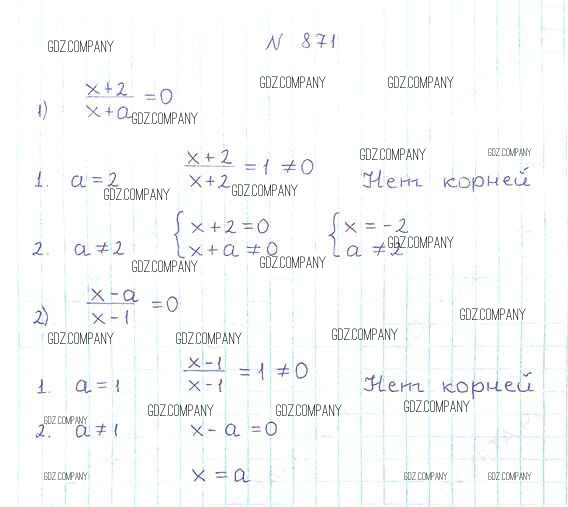 GDZ.COMPANY
N 871
GDZ.COMPANY GDZ.COMPANY
1) x+2/x+a = 0
GDZ.COMPANY
GDZ.COMPANY GDZ.COMPANY
1. a = 2 x+2/x+2 = 1 ≠ 0 Нет корней
GDZ.COMPANY GDZ.COMPANY
2. a ≠ 2 { x + 2 = 0 { x = -2
x + a ≠ 0 a ≠ 2
GDZ.COMPANY
GDZ.COMPANY GDZ.COMPANY
2) x-a/x-1 = 0
GDZ.COMPANY
GDZ.COMPANY GDZ.COMPANY GDZ.COMPANY
1. a = 1 x-1/x-1 = 1 ≠ 0 Нет корней
GDZ.COMPANY GDZ.COMPANY GDZ.COMPANY
GDZ.COMPANY
2. a ≠ 1 x - a = 0
x = a
GDZ.COMPANY GDZ.COMPANY GDZ.COMPANY